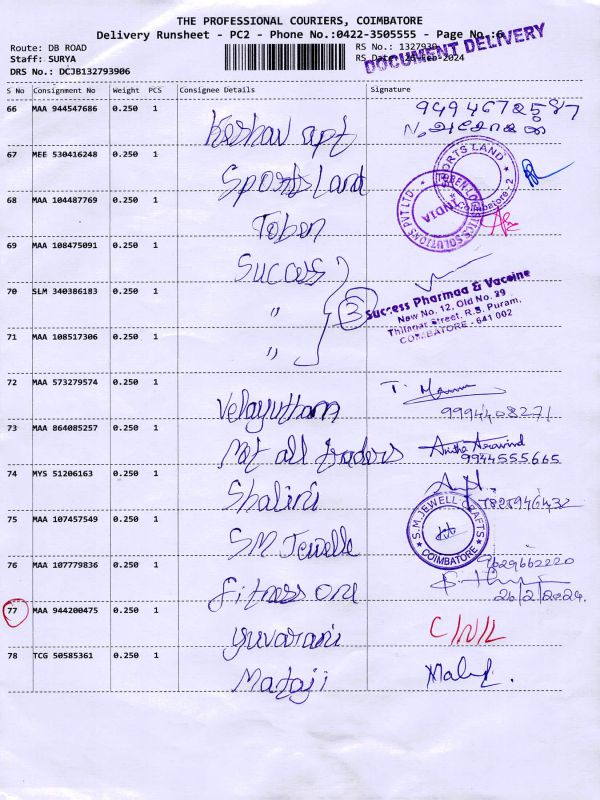 THE PROFESSIONAL COURIERS, COIMBATORE
Delivery Runsheet - PC2 - Phone No.:0422-3505555 - Page No.:6
Route: DB ROAD
Staff: SURYA
DRS No.: DCJB132793906
RS No.: 1327939
RS Date: 26-Feb-2024
DOCUMENT DELIVERY
S No Consignment No Weight PCS Consignee Details Signature
66 MAA 944547686 0.250 1 Keshav apt
67 MEE 530416248 0.250 1 Sports Land
SPORTS LAND
Coimbatore-2
68 MAA 104487769 0.250 1 Toben
INDIA
69 MAA 108475091 0.250 1 Success
70 SLM 340386183 0.250 1 " 3
Success Pharmaa & Vaccine
New No. 12, Old No. 29
Thilagar Street, R.S. Puram,
COIMBATORE - 641 002
71 MAA 108517306 0.250 1 "
72 MAA 573279574 0.250 1 Velayutham
9994408271
73 MAA 864085257 0.250 1 Met all traders
Anitha Aravind
9944555665
74 MYS 51206163 0.250 1 Shalini
75 MAA 107457549 0.250 1 SM Jewelle
S.M.JEWELL CRAFTS
COIMBATORE
76 MAA 107779836 0.250 1 fitness one
9629662220
26/2/2024
77 MAA 944200475 0.250 1 yuvarani
78 TCG 50585361 0.250 1 Mataji